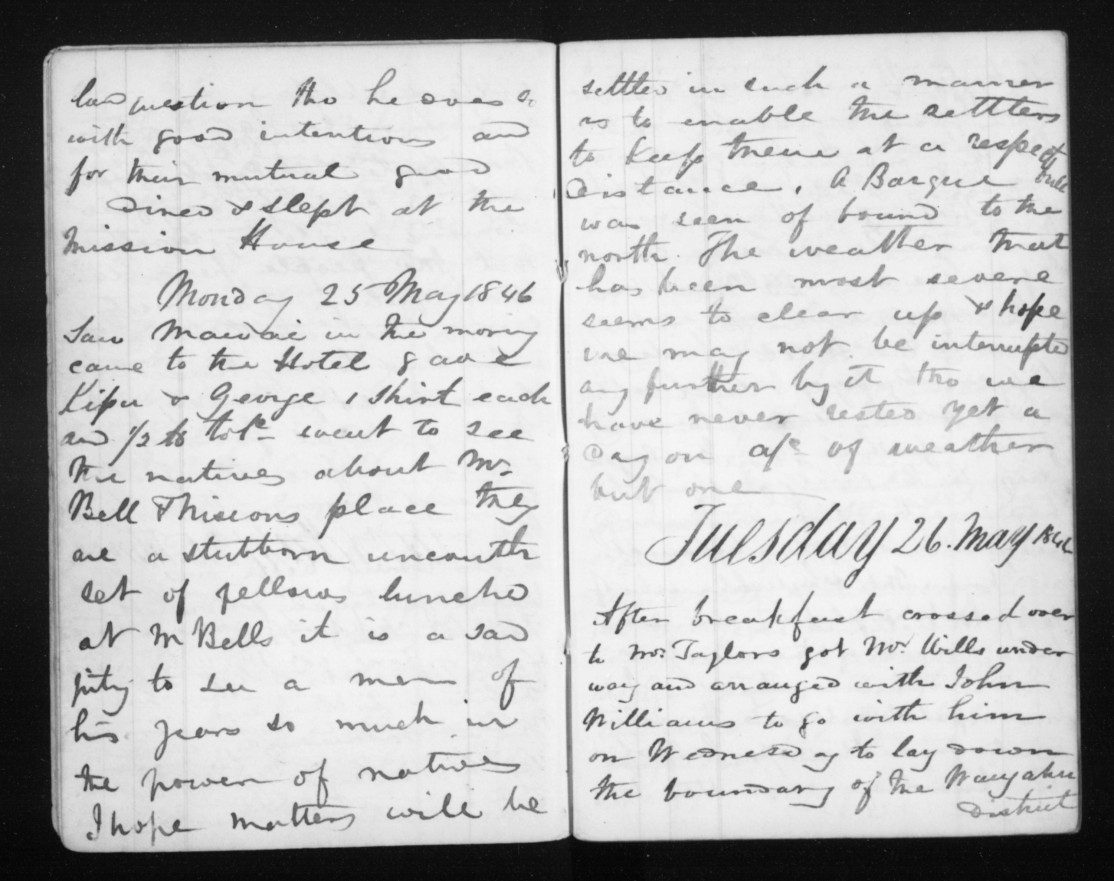 land question tho he does so
with good intentions and
for their mutual good
Dined & slept at the
Mission House
Monday 25 May 1846
Saw Mawae in the morning
came to the Hotel gave
Kipu & George 1 Shirt each
and 1/2 lb tobo. went to see
the natives about Mr.
Bell & Nixons place they
are a stubborn uncouth
set of fellows lunched
at Mr Bells it is a sad
pity to see a man of
his years so much in
the power of natives
I hope matters will be
settled in such a manner
as to enable the settlers
to keep them at a respectfull
distance. A Barque
was seen of bound to the
north. The weather that
has been most severe
seems to clear up & hope
we may not be interrupted
any further by it tho we
have never rested yet a
Day on a/c of weather
but one
Tuesday 26. May 1846
After breakfast crossed over
to Mr. Taylors got Mr. Wills under
way and arranged with John
Williams to go with him
on Wednesday to lay down
the boundary of the
District